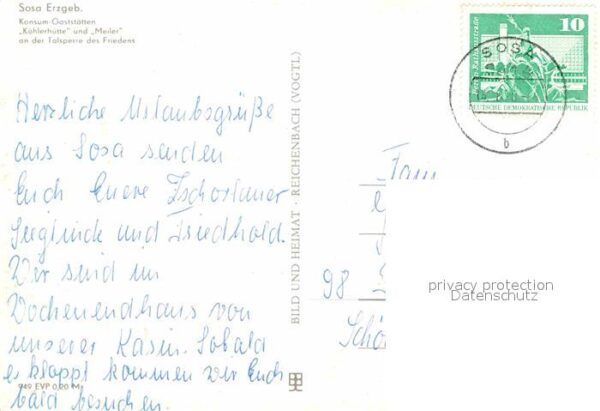 Sosa Erzgeb.
Konsum-Gaststätten
„Köhlerhütte" und „Meiler"
an der Talsperre des Friedens
Herzliche Urlaubsgrüße
aus Sosa senden
Euch Euere Zschorlauer
Sieglinde und Friedhold.
Wir sind im
Wochenendhaus von
unserer Kasin. Sobald
es klappt kommen wir Euch
bald besuchen.
949 EVP 0,20 M
BILD UND HEIMAT · REICHENBACH (VOGTL)
10
DEUTSCHE DEMOKRATISCHE REPUBLIK
SOSA
b
Fam
98
Schö
privacy protection
Datenschutz